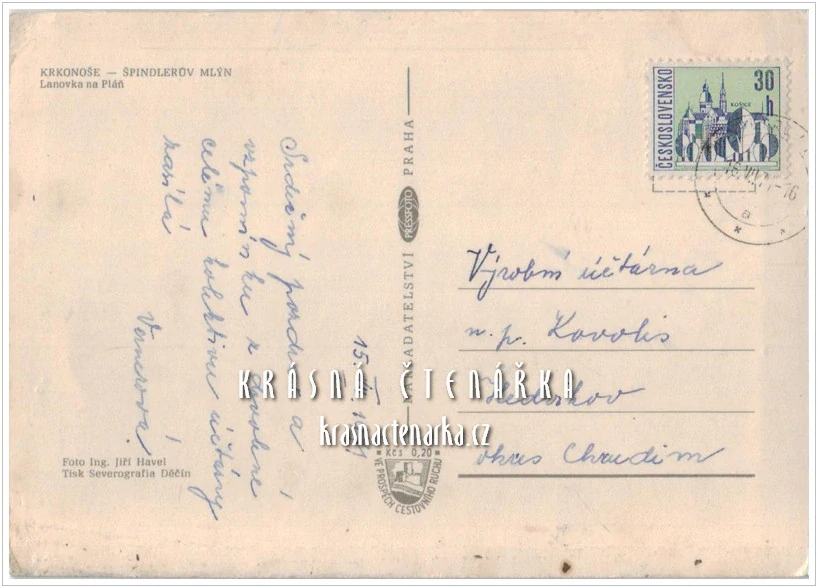 KRKONOŠE — ŠPINDLERŮV MLÝN
Lanovka na Pláň
Srdečný pozdrav a
vzpomínku z dovolené
celému kolektivu účtárny
zasílá
Vernerová
15.
Foto Ing. Jiří Havel
Tisk Severografia Děčín
NAKLADATELSTVÍ PRESSFOTO PRAHA
Kčs 0,20
VE PROSPĚCH CESTOVNÍHO RUCHU
ČESKOSLOVENSKO
30 h
KOŠICE
Výrobní účtárna
n. p. Kovolis
Hedvikov
okres Chrudim
KRÁSNÁ ČTENÁŘKA
krasnactenarka.cz